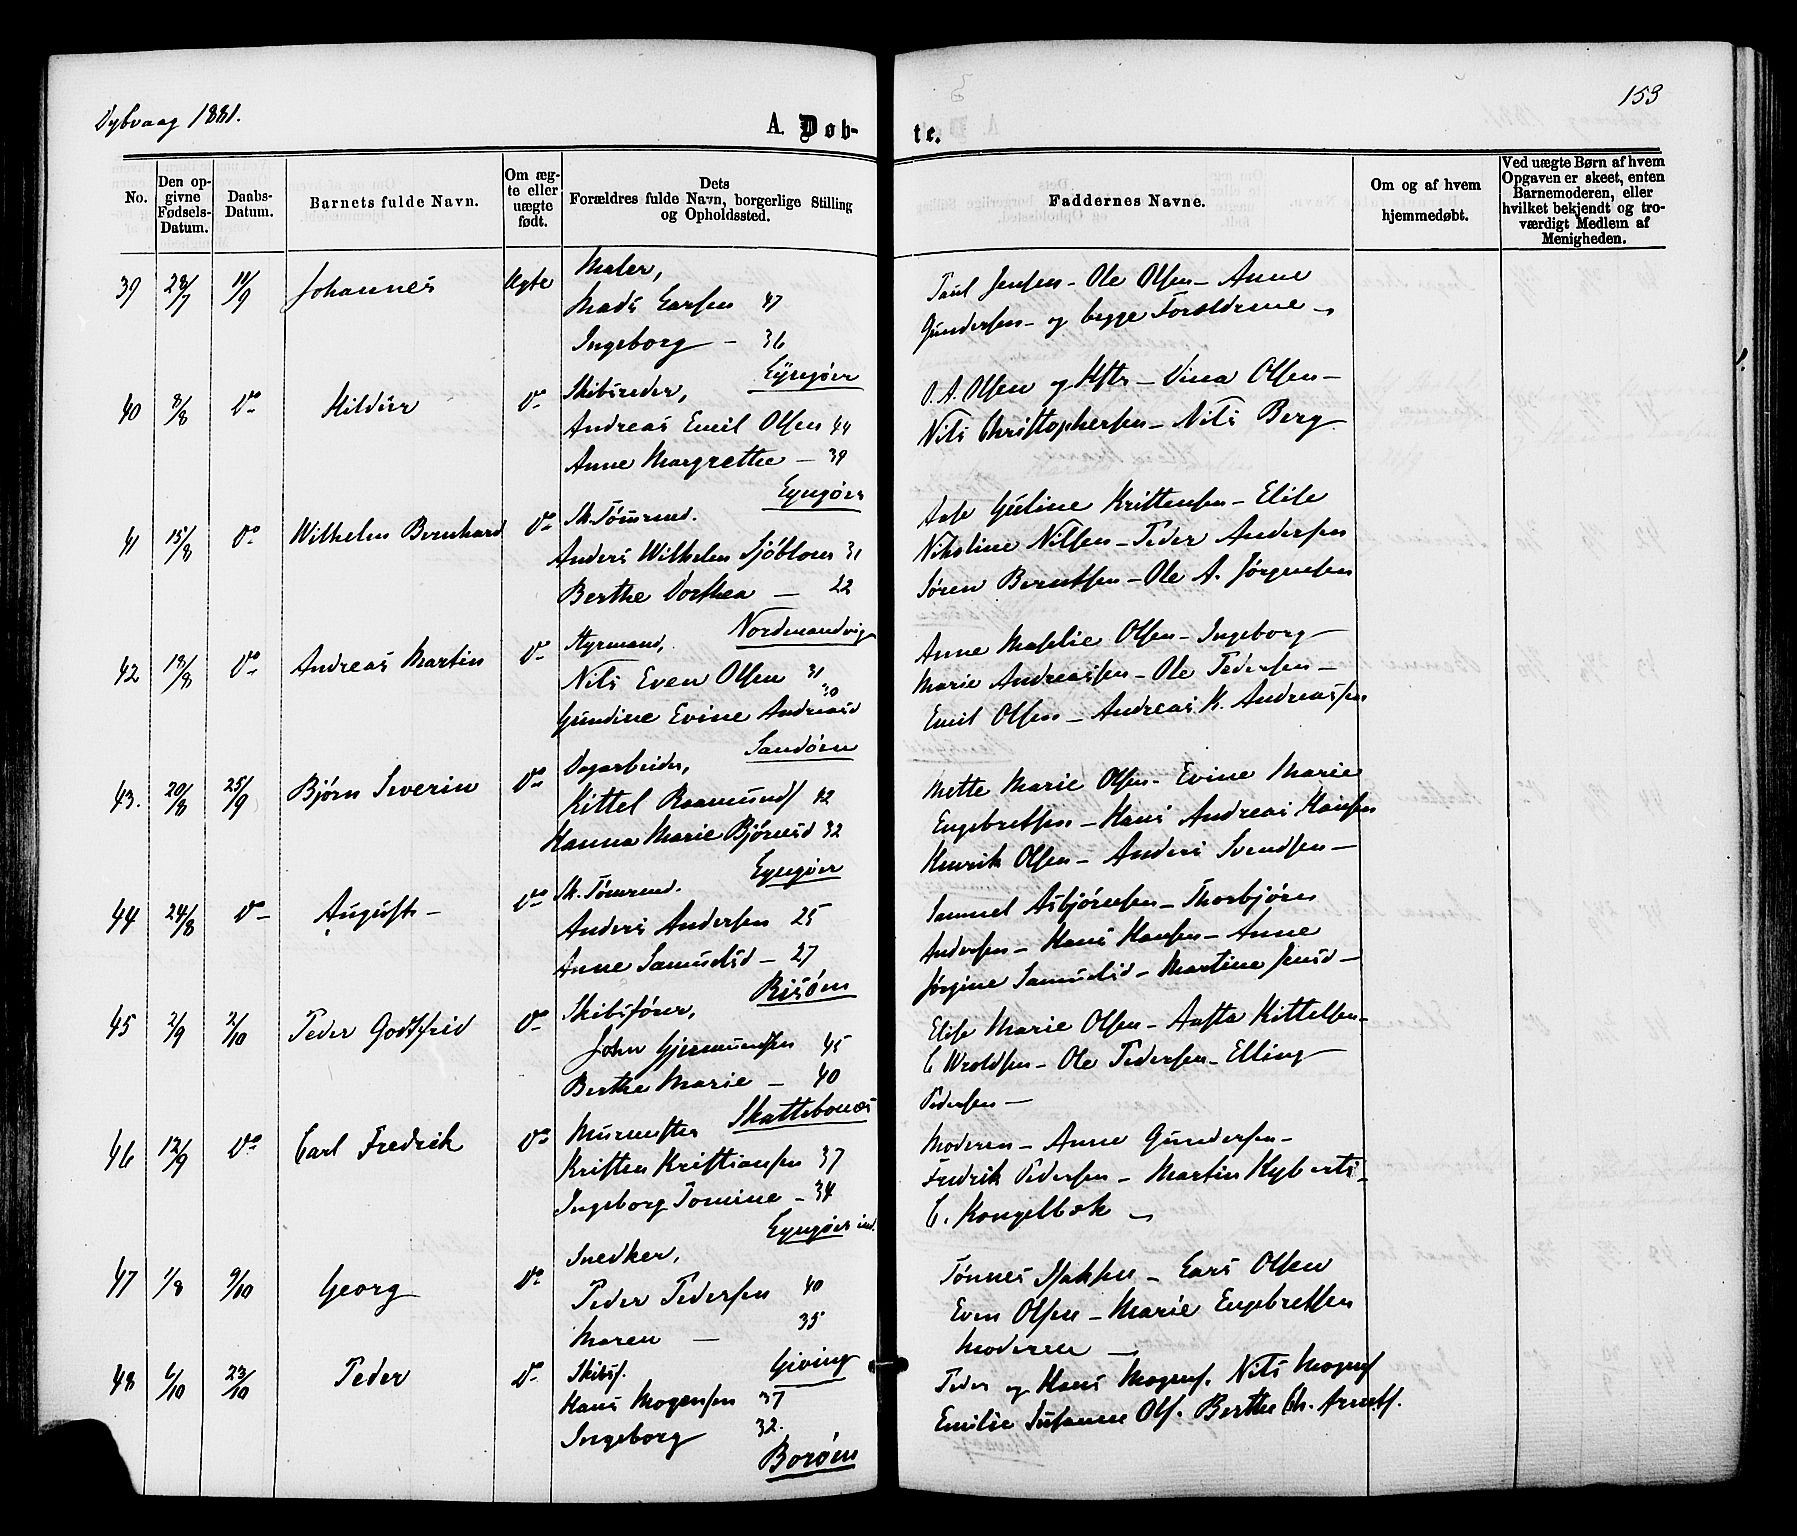 Dybvaag 1881.
153
A. Døb-
te.
No.
Den op-
givne
Fødsels-
Datum.
Daabs-
Datum.
Barnets fulde Navn.
Om æg-
te eller
uægte
født.
Dets
Forældres fulde Navn, borgerlige Stilling
og Opholdssted.
Faddernes Navne.
Om og af hvem
hjemmedøbt.
Ved uægte Børn af hvem
Opgaven er skeet, enten
Barnemoderen, eller
hvilket bekjendt og tro-
værdigt Medlem af
Menigheden.
39 28/7 11/9 Johannes Ægte Maler,
Mads Larsen 47
Ingeborg — 36
Lyngøer
Paul Jensen – Ole Olsen – Anne
Gundersen – og begge Forældrene –
40 8/8 Do Hildur Do Skibsreder,
Andreas Emil Olsen 44
Anne Margrethe — 39
Lyngøer
O. A. Olsen og Hstr – Vina Olsen –
Nils Christophersen – Nils Berg
41 15/8 Do Wilhelm Bernhard Do Sk. Tømmd.
Anders Wilhelm Sjöblom 31
Berthe Dorthea — 22
Nordmandvig
Aase Guline Kristensen – Elise
Nikoline Nilsen – Peder Andersen
Søren Berntsen – Ole A. Jörgensen
42 18/8 Do Andreas Martin Do Styrmand,
Nils Even Olsen 31
Gundine Evine Andreasd 30
Sandøen
Anne Maselie Olsen – Ingeborg
Marie Andreassen – Ole Pedersen –
Emil Olsen – Andreas K. Andreassen
43. 20/8 25/9 Bjørn Severin Do Dagarbeider,
Kittel Roamunds 42
Hanna Marie Bjørnsd 32
Lyngøer
Mette Marie Olsen – Evine Marie
Engebretsen – Hans Andreas Hansen
Henrik Olsen – Anders Svendsen –
44 24/8 Do August – Do Sk. Tømmd.
Anders Andersen 25
Anne Samuelsd – 27
Risøen
Samuel Asbjørnsen – Thorbjørn
Andersen – Hans Hansen – Anne
Jørgine Samuelsd – Martine Jensd –
45 2/9 2/10 Peder Godtfrid Do Skibsfører,
John Gjermundsen 45
Berthe Marie — 40
Skattebonæs
Elise Marie Olsen – Aasta Kittelsen –
C Wroldsen – Ole Pedersen – Elling
Pedersen –
46 12/9 Do Carl Fredrik Do Murmester
Kristen Kristiansen 37
Ingeborg Tomine – 34
Lyngøer ind.
Moderen – Anne Gundersen –
Fredrik Pedersen – Martin Hyberts –
C. Kongelbæk –
47 1/8 9/10 Georg Do Snedker,
Peder Pedersen 40
Maren — 35
Giving
Tønnes Isaksen – Lars Olsen
Even Olsen – Marie Engebretsen
Moderen –
48 6/10 23/10 Peder Do Skibsf.
Hans Mogensen 37
Ingeborg 32.
Borøen
Peder og Hans Mogens. Nils Mogens
Emilie Susanne Ols. Berthe Ch. Arnets.